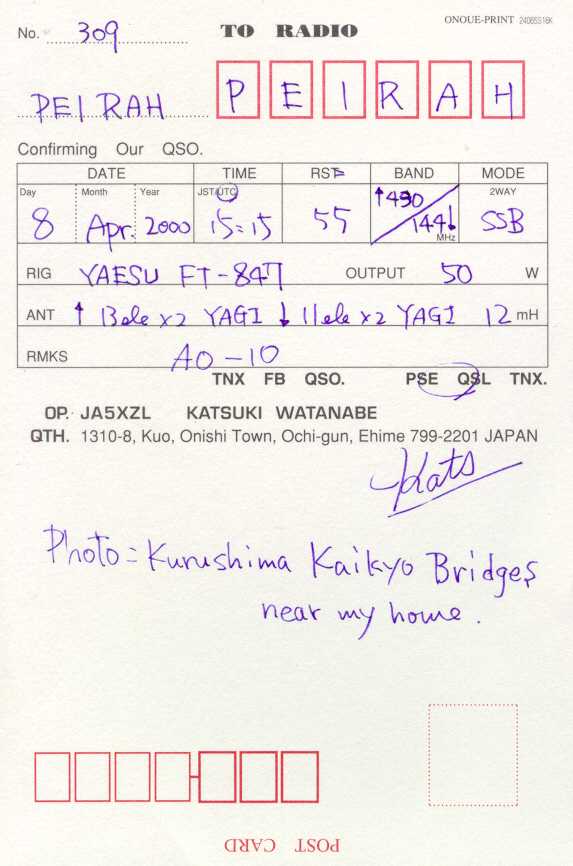 No. 309 TO RADIO ONOUE-PRINT
PEIRAH P E I R A H
Confirming Our QSO.
DATE TIME RST BAND MODE
Day Month Year JST/UTC 2WAY
8 Apr. 2000 15:15 55 ↑430/144↓ MHz SSB
RIG YAESU FT-847 OUTPUT 50 W
ANT ↑ 13ele x2 YAGI ↓ 11ele x2 YAGI 12 mH
RMKS AO-10
TNX FB QSO. PSE QSL TNX.
OP. JA5XZL KATSUKI WATANABE
QTH. 1310-8, Kuo, Onishi Town, Ochi-gun, Ehime 799-2201 JAPAN
Kats
Photo = Kurushima Kaikyo Bridges
near my home.
POST CARD